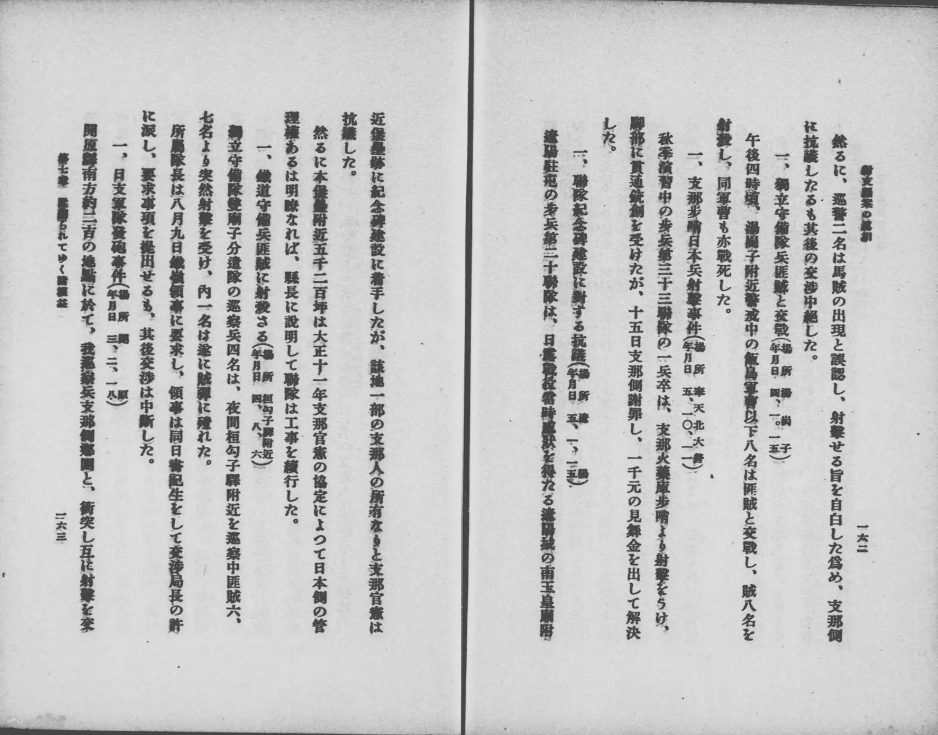 一六二
然るに、巡警二名は馬賊の出現と誤認し、射撃せる旨を自白した爲め、支那側
に抗議したるも其後の交渉中絶した。
一、獨立守備隊兵匪賊と交戰(場所 湯崗子 年月日 四、一〇、一五)
午後四時頃、湯崗子附近警戒中の飯島軍曹以下八名は匪賊と交戰し、賊八名を
射殺し、同軍曹も亦戰死した。
一、支那步哨日本兵射擊事件(場所 奉天北大營 年月日 五、一〇、一一)
秋季演習中の步兵第三十三聯隊の一兵卒は、支那火藥庫步哨より射擊をうけ、
脚部に貫通銃創を受けたが、十五日支那側謝罪し、一千元の見舞金を出して解決
した。
一、聯隊紀念碑建設に對する抗議(場所 遼陽 年月日 五、一、一五)
遼陽駐屯の步兵第二十聯隊は、日露戰役當時感狀を得たる遼陽城の南玉皇廟附
近堡壘跡に記念碑建設に着手したが、該地一部の支那人の所有なりと支那官憲は
抗議した。
然るに本堡壘附近五千二百坪は大正十一年支那官憲の協定によつて日本側の管
理權あるは明瞭なれば、縣長に說明して聯隊は工事を續行した。
一、鐵道守備兵匪賊に射殺さる(場所 桓勾子驛附近 年月日 四、八、六)
獨立守備隊雙廟子分遣隊の巡察兵四名は、夜間桓勾子驛附近を巡察中匪賊六、
七名より突然射擊を受け、內一名は遂に賊彈に殪れた。
所屬隊長は八月九日鐵嶺領事に要求し、領事は同日書記生をして交涉局長の許
に派し、要求事項を提出せるも、其後交渉は中斷した。
一、日支軍隊發砲事件(場所 開原 年月日 三、二、一八)
開原驛南方約三百の地點に於て、我巡察兵支那側鄕團と、衝突し互に射擊を交
第七章
られてゆく
一六三